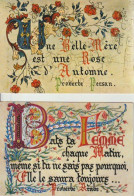 Une Belle-Mère
est une Rose
d'Automne.
Proverbe Persan.
Bats ta Femme
chaque Matin,
même si tu ne sais pas pourquoi.
Elle le saura toujours...
Proverbe Arabe